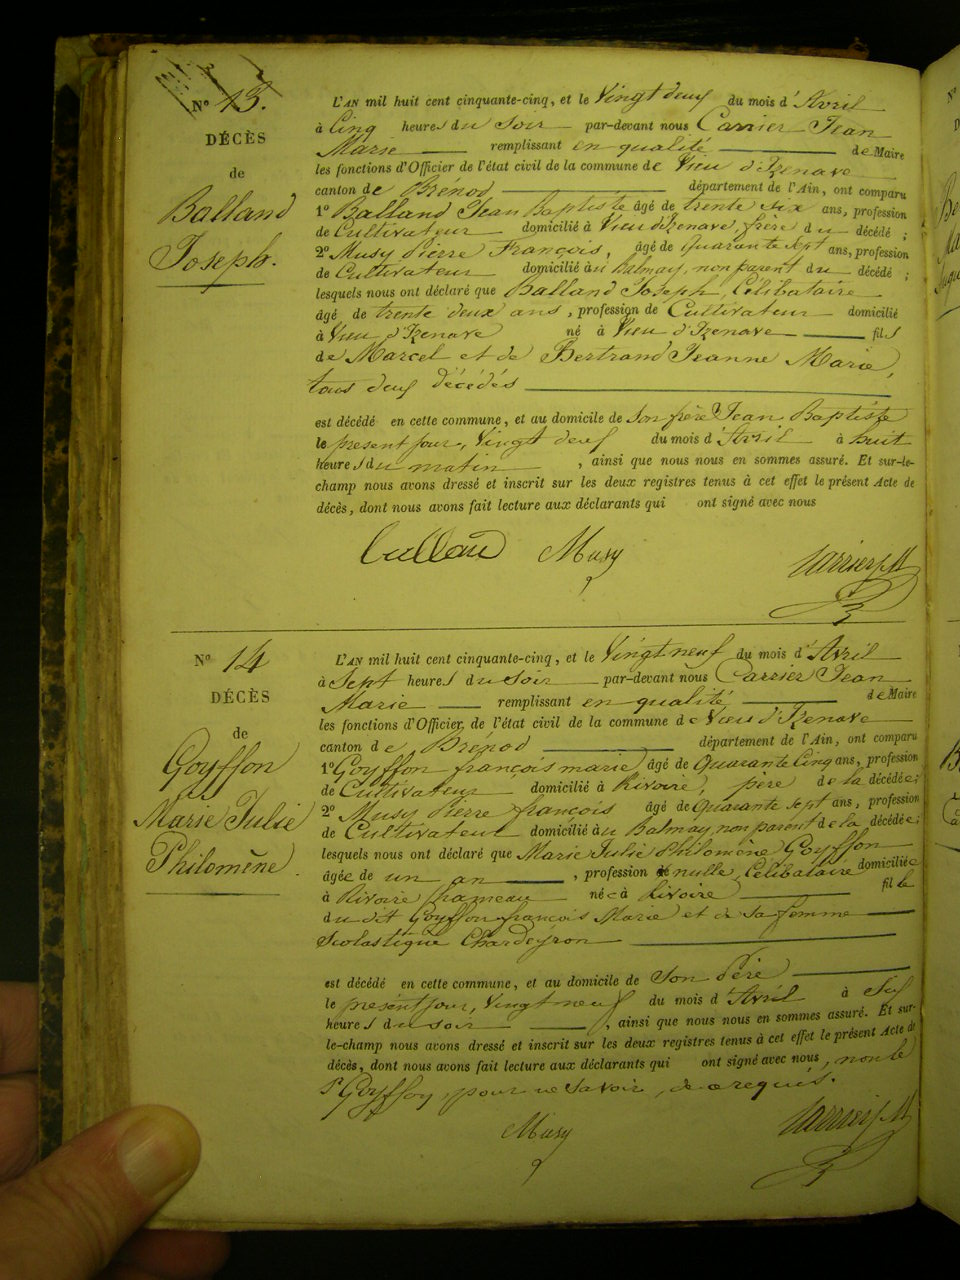 N° 13.
DÉCÈS
de
Balland
Joseph.
L'AN mil huit cent cinquante-cinq, et le Vingt deux du mois d'Avril
à Cinq heures du Soir par-devant nous Carrier Jean
Marie remplissant en qualité de Maire
les fonctions d'Officier de l'état civil de la commune de Vieu d'Izenave
canton de Brénod département de l'Ain, ont comparu
1° Balland Jean Baptiste âgé de trente six ans, profession
de Cultivateur domicilié à Vieu d'Izenave, frère du décédé ;
2° Musy Pierre François, âgé de quarante sept ans, profession
de Cultivateur domicilié au Balmay, non parent du décédé ;
lesquels nous ont déclaré que Balland Joseph, Célibataire
âgé de trente deux ans, profession de Cultivateur domicilié
à Vieu d'Izenave né à Vieu d'Izenave fils
de Marcel et de Bertrand Jeanne Marie,
tous deux décédés
est décédé en cette commune, et au domicile de Son frère Jean Baptiste
le présent jour, Vingt deux du mois d'Avril à huit
heures du matin, ainsi que nous nous en sommes assuré. Et sur-le-
champ nous avons dressé et inscrit sur les deux registres tenus à cet effet le présent Acte de
décès, dont nous avons fait lecture aux déclarants qui ont signé avec nous
Musy Carrier J M
N° 14
DÉCÈS
de
Goyffon
Marie Julie
Philomène
L'AN mil huit cent cinquante-cinq, et le Vingt neuf du mois d'Avril
à Sept heures du Soir par-devant nous Carrier Jean
Marie remplissant en qualité de Maire
les fonctions d'Officier de l'état civil de la commune de Vieu d'Izenave
canton de Brénod département de l'Ain, ont comparu
1° Goyffon françois marie âgé de Quarante Cinq ans, profession
de Cultivateur domicilié à Rivoire, père de la décédée ;
2° Musy Pierre françois âgé de Quarante Sept ans, profession
de Cultivateur domicilié au Balmay, non parent de la décédée ;
lesquels nous ont déclaré que Marie Julie Philomène Goyffon
âgée de un an, profession nulle, Célibataire domiciliée
à Rivoire hameau née à Rivoire fille
du dit Goyffon françois Marie et de Sa femme
Scolastique Chardeyron
est décédé en cette commune, et au domicile de Son Père
le présent jour, Vingt neuf du mois d'Avril à Six
heures du soir, ainsi que nous nous en sommes assuré. Et sur-
le-champ nous avons dressé et inscrit sur les deux registres tenus à cet effet le présent Acte de
décès, dont nous avons fait lecture aux déclarants qui ont signé avec nous, non le
Sr Goyffon, pour ne Savoir, de ce requis.
Musy Carrier J M